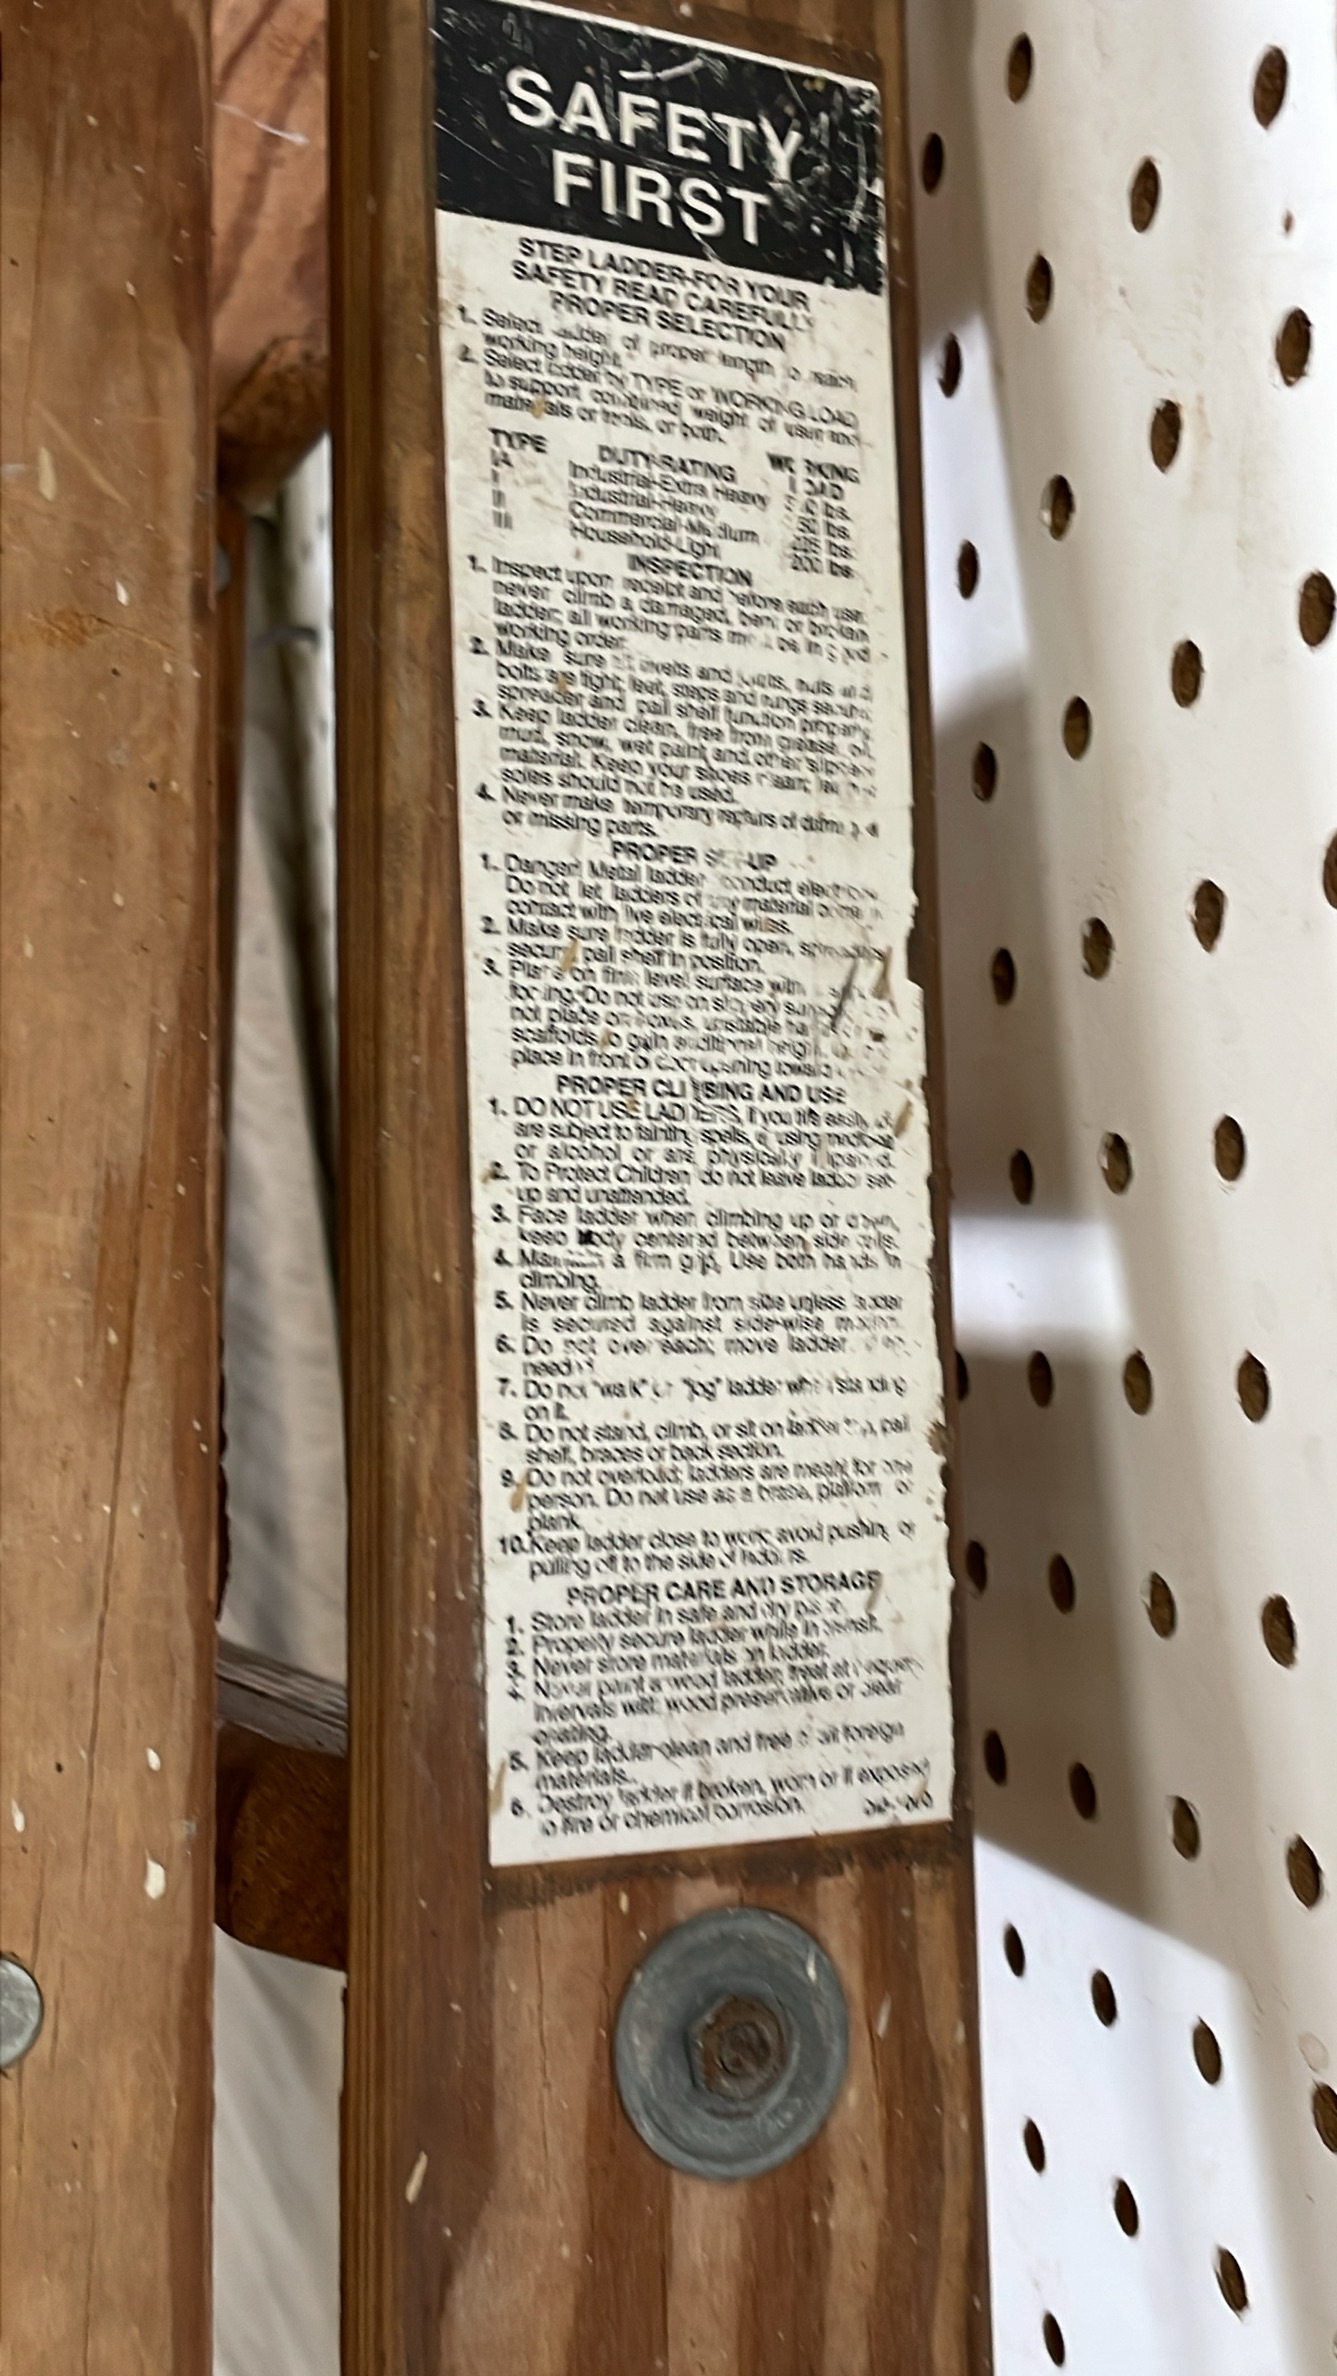 SAFETY
FIRST
STEP LADDER-FOR YOUR
SAFETY READ CAREFULLY
PROPER SELECTION
1. Select ladder of proper length to reach
working height.
2. Select ladder by TYPE or WORKING LOAD
to support combined weight of user and
materials or tools, or both.
TYPE DUTY-RATING WORKING LOAD
IA Industrial-Extra Heavy lbs.
I Industrial-Heavy lbs.
II Commercial-Medium 225 lbs.
III Household-Light 200 lbs.
INSPECTION
1. Inspect upon receipt and before each use;
never climb a damaged, bent or broken
ladder; all working parts must be in good
working order.
2. Make sure all rivets and joints, nuts and
bolts are tight; feet, steps and rungs secure;
spreader and pail shelf function properly.
3. Keep ladder clean, free from grease, oil,
mud, snow, wet paint and other slippery
material. Keep your shoes clean;
soles should not be used.
4. Never make temporary repairs of damaged
or missing parts.
PROPER SET-UP
1. Danger! Metal ladders conduct electricity.
Do not let ladders of any material come in
contact with live electrical wires.
2. Make sure ladder is fully open, spreaders
secure, pail shelf in position.
3. Place on firm level surface with
footing. Do not use on slippery
not place on boxes, unstable
scaffolds to gain additional height.
place in front of door opening toward
PROPER CLIMBING AND USE
1. DO NOT USE LADDERS, if you tire easily, or
are subject to fainting spells, or using medicine
or alcohol or are physically impaired.
2. To Protect Children do not leave ladder set-
up and unattended.
3. Face ladder when climbing up or down,
keep body centered between side rails.
4. Maintain a firm grip, Use both hands in
climbing.
5. Never climb ladder from side unless ladder
is secured against side-wise motion.
6. Do not overreach; move ladder when
needed.
7. Do not "walk" or "jog" ladder when standing
on it.
8. Do not stand, climb, or sit on ladder top, pail
shelf, braces or back section.
9. Do not overload; ladders are meant for one
person. Do not use as a brace, platform or
plank.
10. Keep ladder close to work; avoid pushing or
pulling off to the side of ladders.
PROPER CARE AND STORAGE
1. Store ladder in safe and dry place.
2. Properly secure ladder while in transit.
3. Never store materials on ladder.
4. Never paint a wood ladder; treat at frequent
intervals with wood preservative or clear
coating.
5. Keep ladder clean and free of all foreign
materials.
6. Destroy ladder if broken, worn or if exposed
to fire or chemical corrosion.